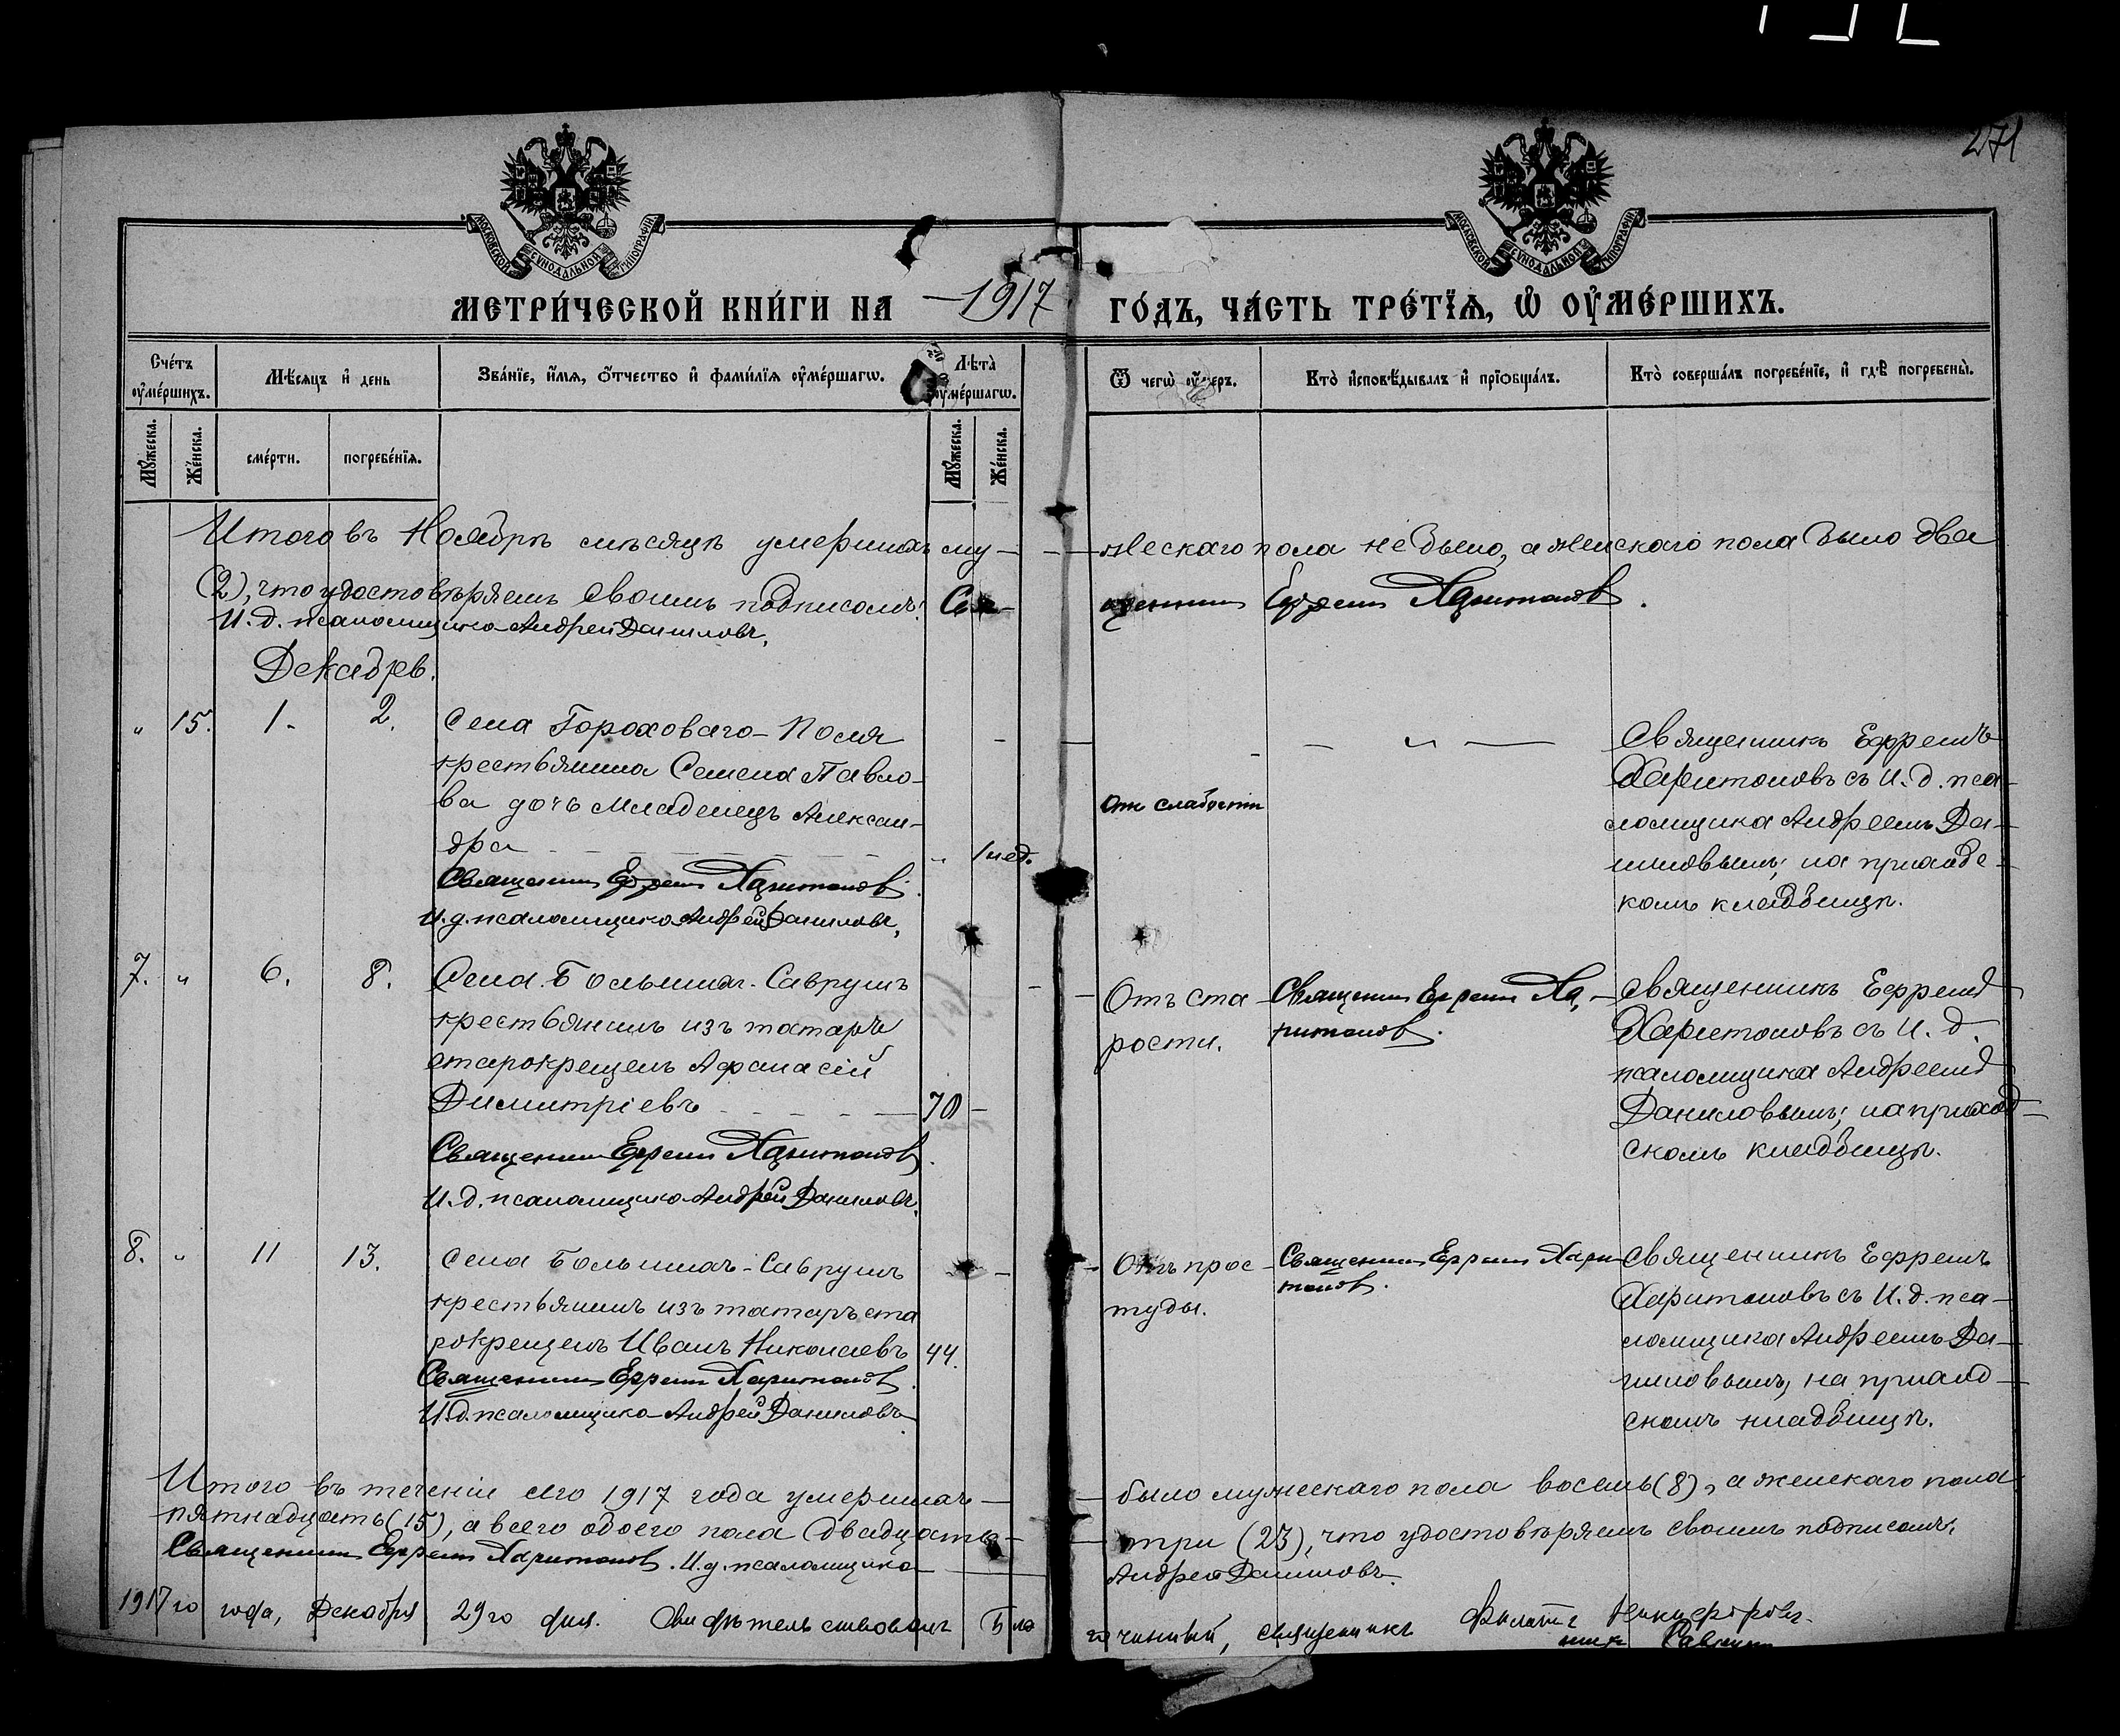 271
МОСКОВСКОЙ СѴНОДАЛЬНОЙ ТИПОГРАФІИ
МОСКОВСКОЙ СѴНОДАЛЬНОЙ ТИПОГРАФІИ
МЕТРИ́ЧЕСКОЙ КНИ́ГИ НА 1917 ГО́ДЪ, ЧА́СТЬ ТРЕ́ТЇѦ, Ѡ҆ ОУ҆МЕ́РШИХЪ.
Сче́тъ оу҆ме́ршихъ.
Мѣ́сяцъ и҆ день
Зва́нїе, и҆́мя, ѻ҆́тчество и҆ фами́лїя оу҆ме́ршагѡ.
Лѣ́та оу҆ме́ршагѡ.
Ѿ чегѡ̀ оу҆́меръ.
Кто̀ и҆сповѣ́дывалъ и҆ прїѡбща́лъ.
Кто̀ соверша́лъ погребе́нїе, и҆ гдѣ̀ погребены̀.
Мꙋ́жеска.
Же́нска.
сме́рти.
погребе́нїя.
Мꙋ́жеска.
Же́нска.
Итого въ Ноябрѣ мѣсяцѣ умершихъ му- -жескаго пола не было, а женскаго пола было два
(2), что удостовѣряемъ своимъ подписомъ: Свя- щенникъ Ефремъ Харитоновъ.
И. д. псаломщика Андрей Даниловъ.
Декабрь.
" 15. 1. 2.
Села Гороховаго-Поля
крестьянина Семена Павло-
ва дочь младенецъ Алексан-
дра - - - " 1 нед.
Священникъ Ефремъ Харитоновъ.
И. д. псаломщика Андрей Даниловъ.
Отъ слабости
- " -
Священникъ Ефремъ
Харитоновъ съ И. д. пса-
ломщика Андреемъ Да-
ниловымъ; на приходс-
комъ кладбищѣ.
7. " 6. 8.
Села Большихъ-Саврушъ
крестьянинъ изъ татаръ
старокрещенъ Афанасій
Димитріевъ - - - 70 -
Священникъ Ефремъ Харитоновъ.
И. д. псаломщика Андрей Даниловъ.
Отъ ста-
рости.
Священникъ Ефремъ Ха-
ритоновъ.
Священникъ Ефремъ
Харитоновъ съ И. д.
псаломщика Андреемъ
Даниловымъ; на приход-
скомъ кладбищѣ.
8. " 11 13.
Села Большихъ-Саврушъ
крестьянинъ изъ татаръ ста
рокрещенъ Иванъ Николаевъ 44.
Священникъ Ефремъ Харитоновъ.
И. д. псаломщика Андрей Даниловъ.
Отъ прос-
туды.
Священникъ Ефремъ Хари
тоновъ.
Священникъ Ефремъ
Харитоновъ съ И. д. пса-
ломщика Андреемъ Да-
ниловымъ, на приход-
скомъ кладбищѣ.
Итого въ теченіи сего 1917 года умершихъ - - было мужескаго пола восемь (8), а женскаго пола
пятнадцать (15), а всего обоего пола двадцать - - три (23), что удостовѣряемъ своимъ подписомъ:
Священникъ Ефремъ Харитоновъ. И. д. псаломщика - Андрей Даниловъ.
1917 го года, Декабря 29 го дня. Свидѣтельствовалъ Бла гочинный, священникъ Филиппъ Никифоровъ.